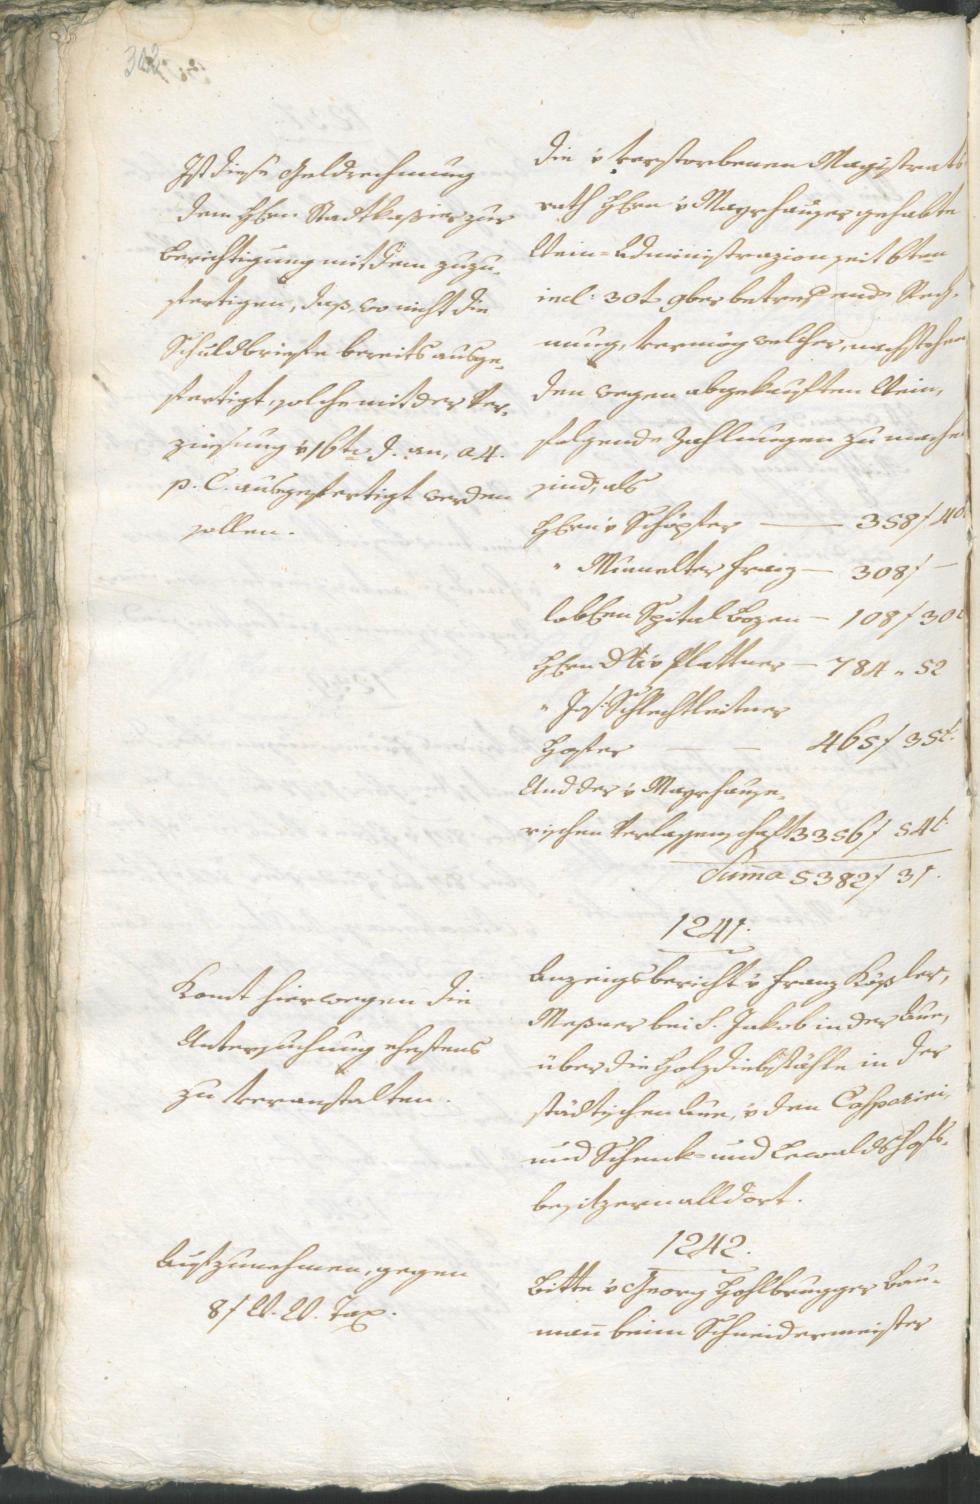 302
Ist diese Geldrechnung
dem HErrn Stadtkaßier zur
Berichtigung mit dem zuzu-
fertigen, daß, wo nicht die
Schuldbriefe bereits ausge-
fertigt, solche mit der Ver-
zinsung v 16ten d. an, a 4.
p. C. ausgefertigt werden
sollen.
die v verstorbenen Magistrats
rath HErrn v Mayrhauser gehabte
Wein-Administrazion seit 6ten
incl: 30t 9ber betreffende Rech-
nung, vermög welcher, nachstehen
den wegen abgekauften Wein,
folgende Zahlungen zu machen
sind, als
HErrn v Schöpfer — 358 f 40
" Mumelter Franz — 308 f —
lobl Spital Bozen — 108 f 30
HErrn v Plattner — 784 " 52
" Jos: Schlechtleitner
Hofer — — 465 f 35
Und der v Mayrhause-
rischen Verlassenschaft 3356 f 54
Suma 5382 f 31.
1241.
Komt hierwegen die
Untersuchung ehestens
zu veranstalten.
Anzeigsbericht v Franz Köpler,
Meßner bei S. Jakob in der Aue,
über die Holzdiebstähle in der
städtischen Aue, v den Caspareini,
und Schenk- und Lewaldshofs-
besitzern alldort.
1242.
Aufzunehmen, gegen
8 f W. W. Tax.
Bitte v Georg Hohlbrugger Bau-
mañ beim Schneidermeister